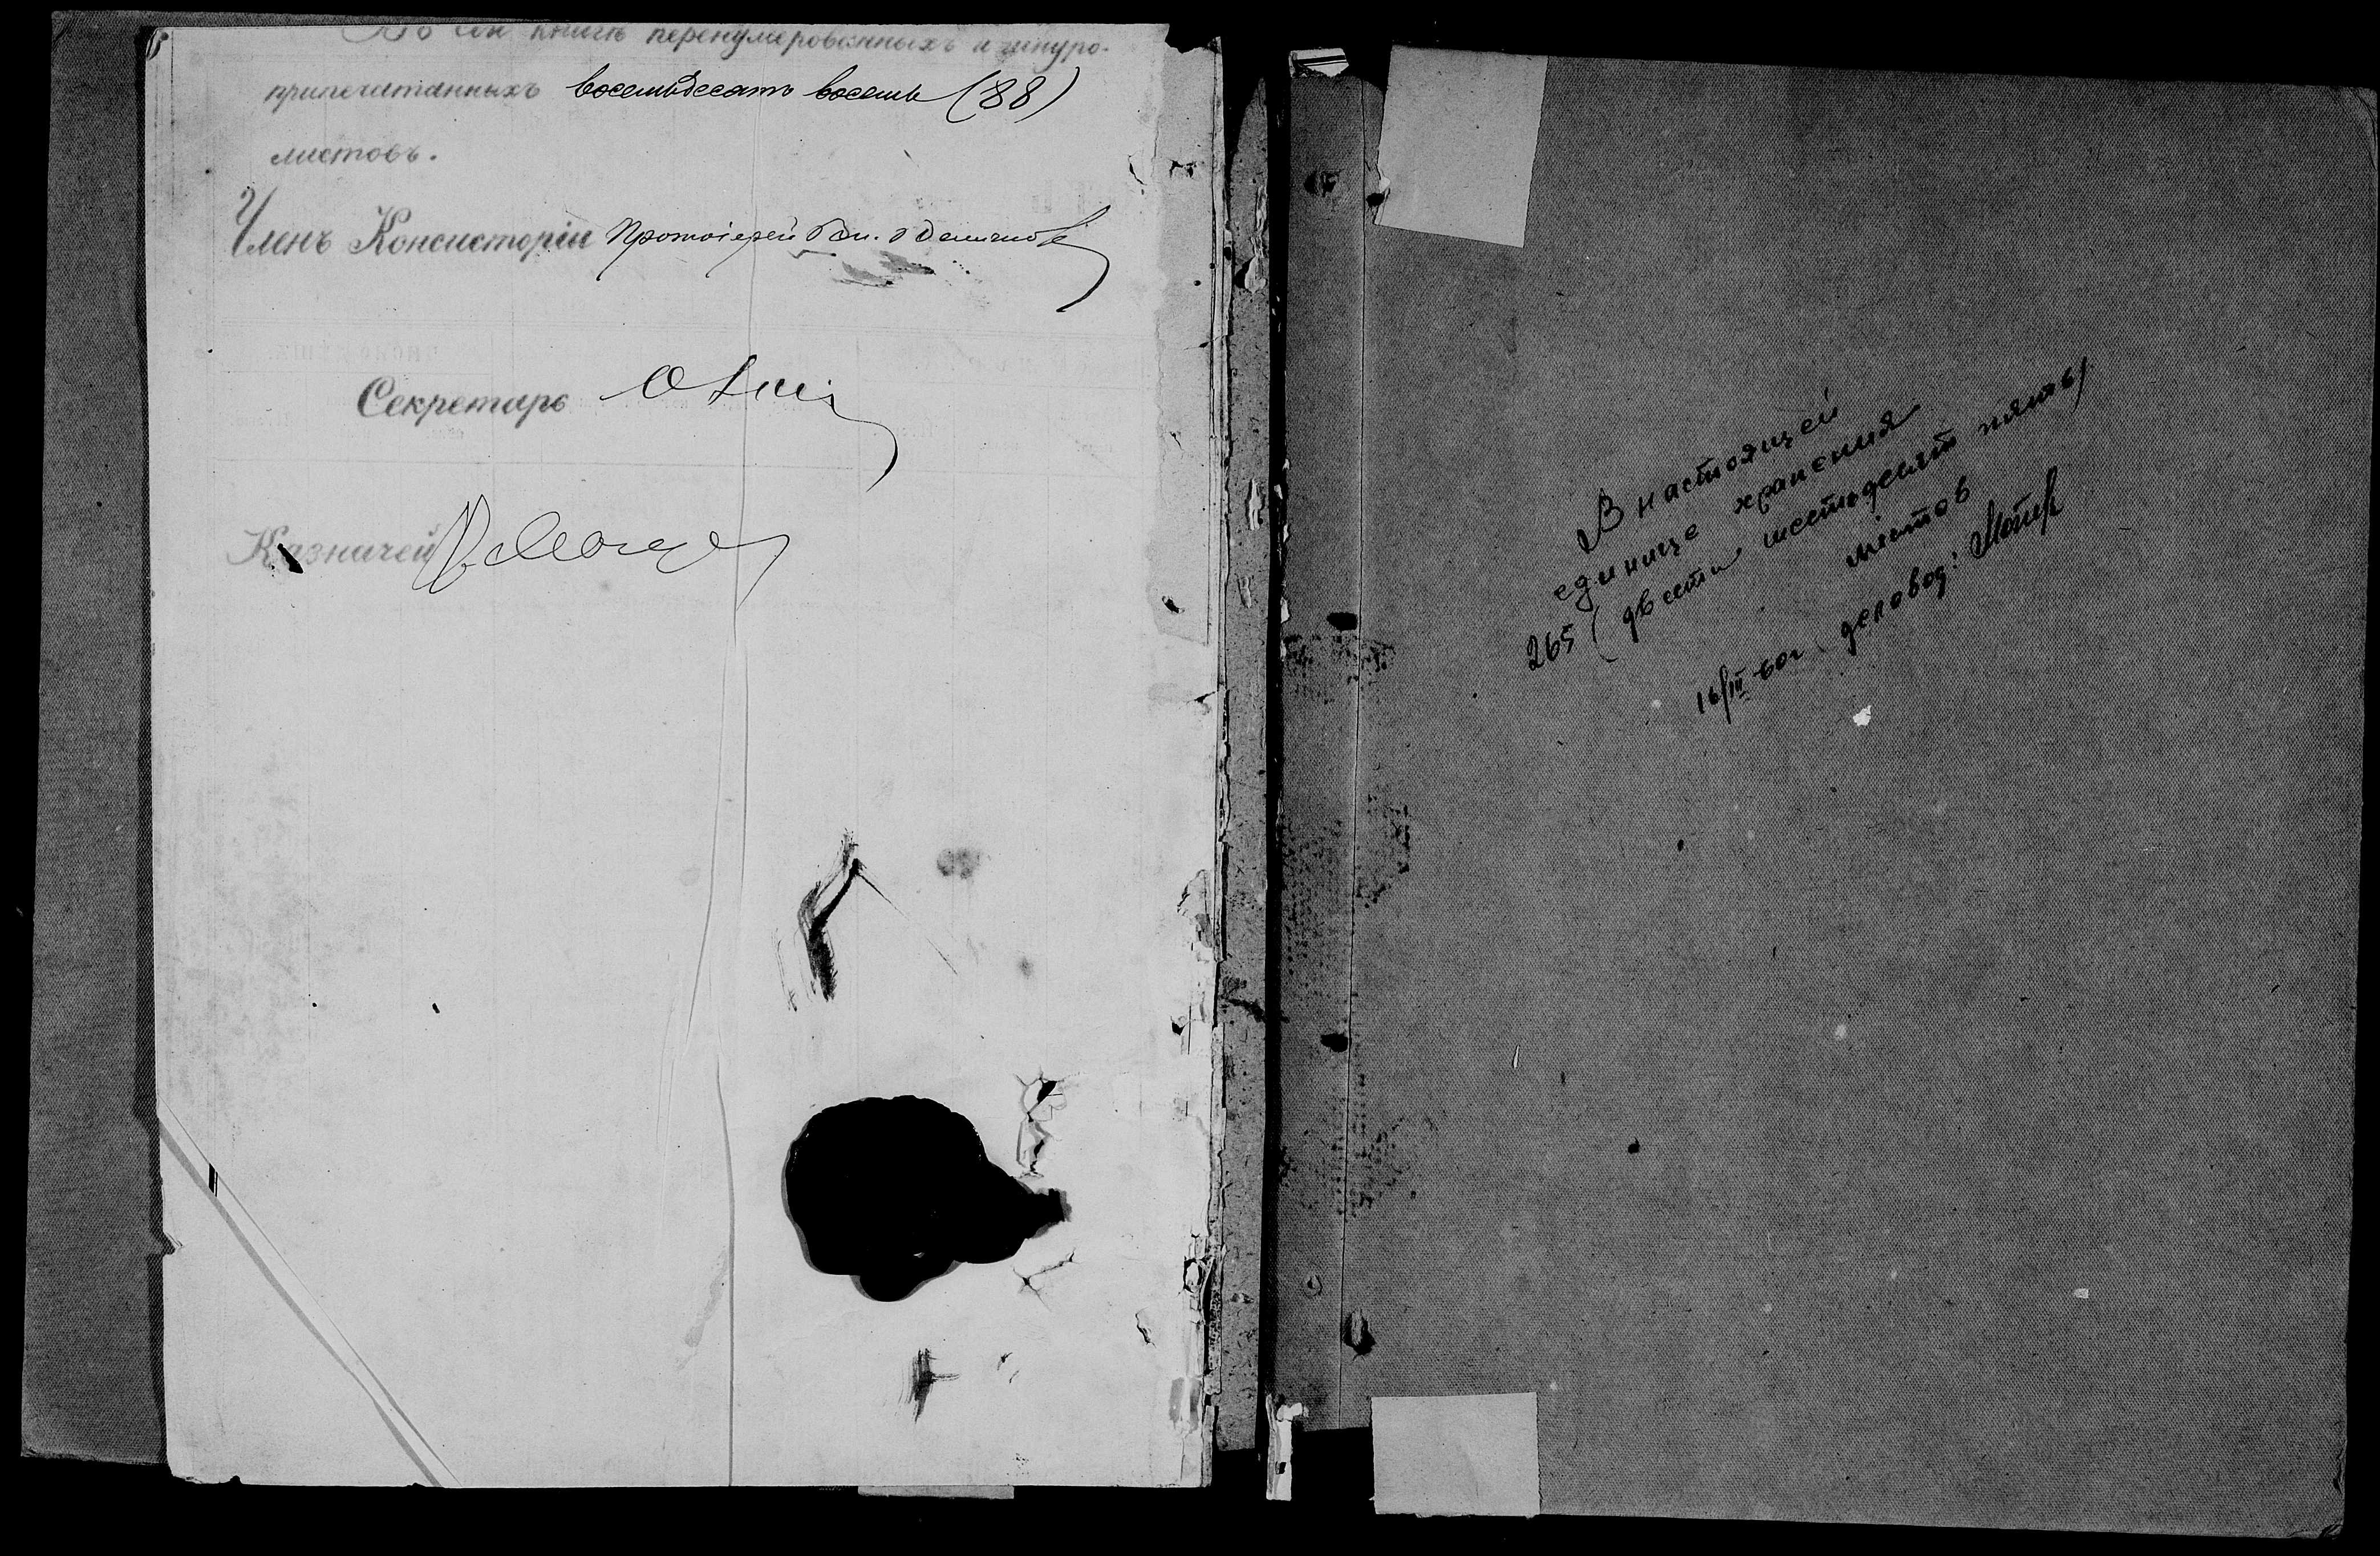 Въ сей книгѣ перенумерованныхъ и шнуро-
припечатанныхъ восемьдесятъ восемь (88)
листовъ.
Членъ Консисторіи Протоіерей
Секретарь
Казначей
В настоящей
единице хранения
265 (двести шестьдесят пять)
листов
16/III-60г деловод: